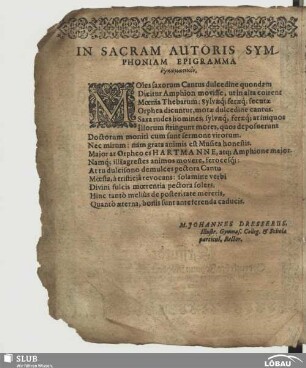 IN SACRAM AUTORIS SYM-
PHONIAM EPIGRAMMA
MOles saxorum Cantus dulcedine quondam
Dicitur Amphion movisse, ut in alta coirent
Mœnia Thebarum: sylvæq; feræq; secutæ
Orphea dicuntur, mota dulcedine cantus.
Sara rudes homines, sylvæq; feræq; at iniquos
Illorum stringunt mores, quos deposuerunt
Doctorum moniti cum sunt sermone virorum.
Nec mirum: nam grata animis est Musica honestis.
Major at Orpheo es HARTMANNE, atq; Amphione major.
Namq; illi agrestes animos movere, ferocesq;:
At tu dulisono demulces pectora Cantu
Mœsta, à tetricis revocans: solamine verbi
Divini fulcis mœrentia pectora solers.
Hinc tantò meliùs de posteritate mereris,
Quantò æterna, bonis sunt anteferenda caducis.
M. JOHANNES DRESSERUS.
Illustr. Gymnas. Coburg. & Schola
particul. Rector.
SLUB
Wir führen Wissen.
LÖBAU